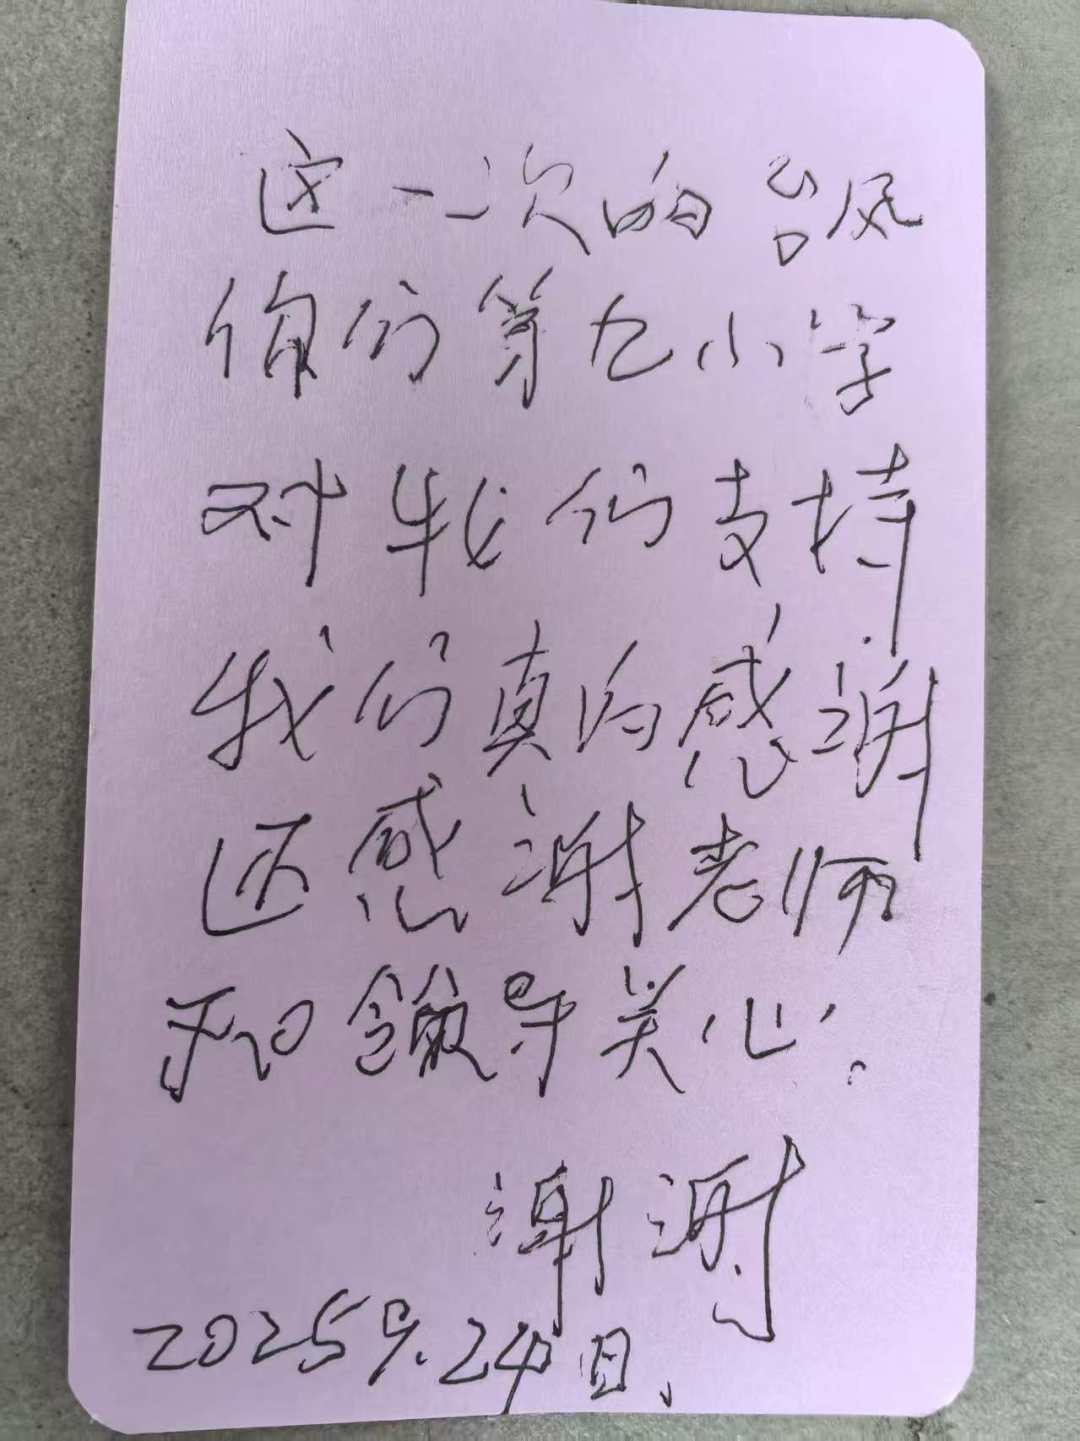 这一次的台风
你们第九小学
对我们支持
我们真的感谢
还感谢老师
和领导关心.
谢谢
2025 9.24日.